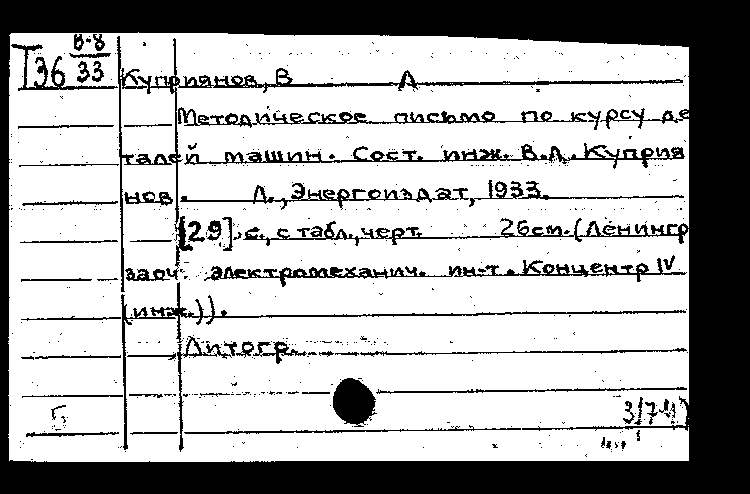 В-8
Т36 33
Куприянов, В А
Методическое письмо по курсу де
талей машин. Сост. инж. В.А. Куприя
нов. Л., Энергоиздат, 1933.
[29] с., с табл., черт. 26см. (Ленингр
заоч. электромеханич. ин-т. Концентр IV
(инж.)).
Литогр.
Б